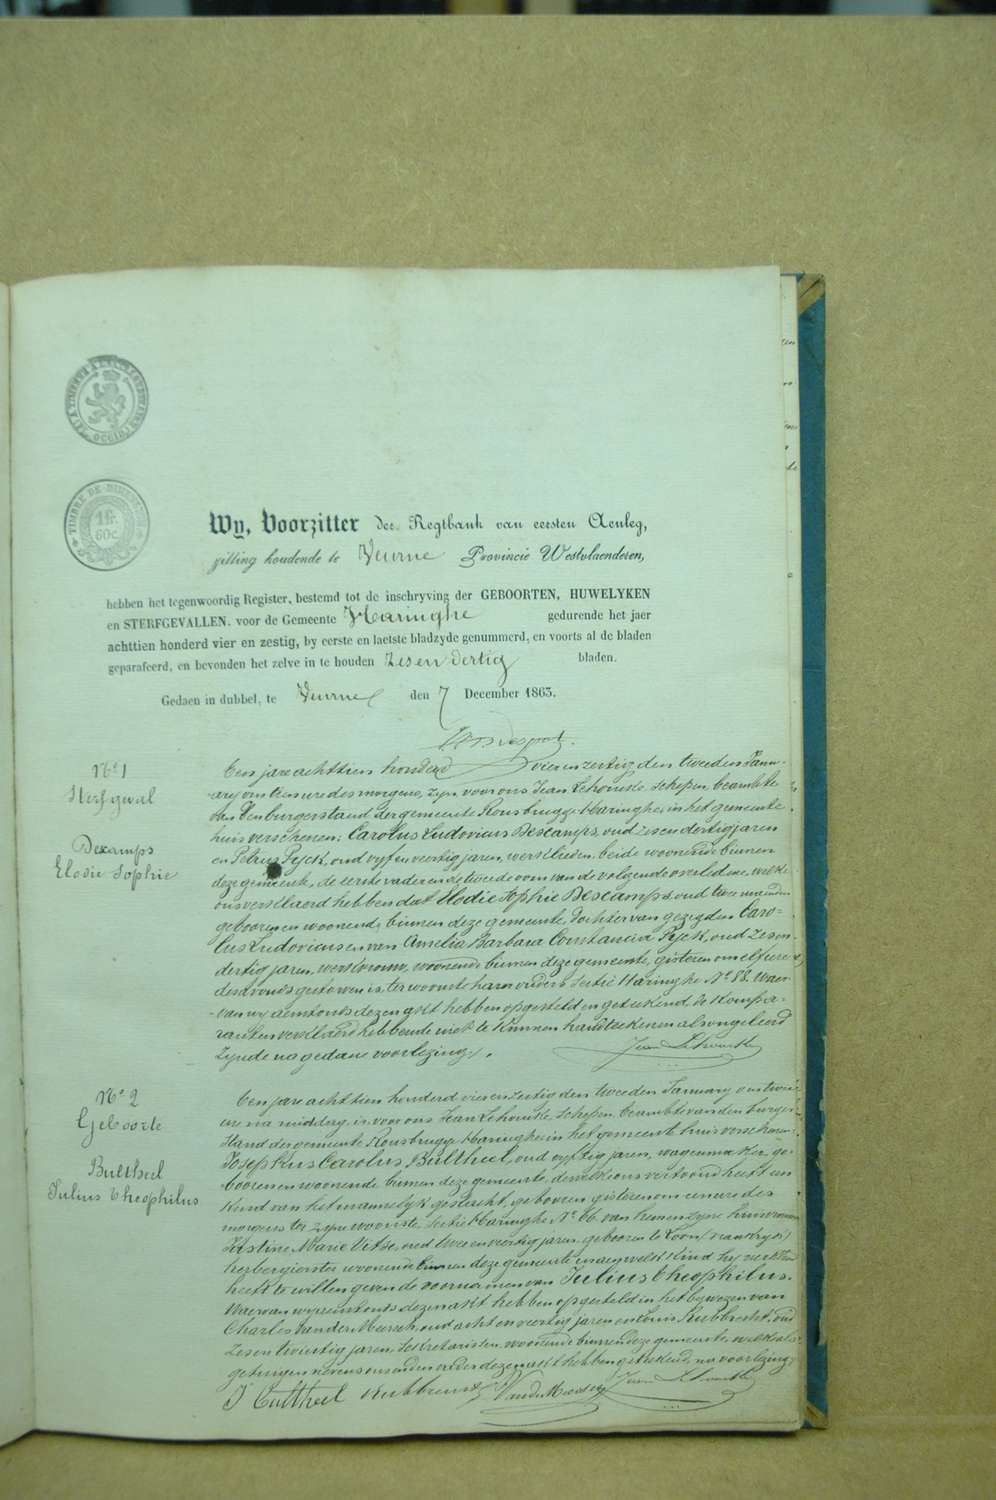 TIMBRE DE DIMENSION
1 fr. 60 c.
Wy, Voorzitter der Regtbank van eersten Aenleg,
zitting houdende te Veurne Provincie Westvlaenderen,
hebben het tegenwoordig Register, bestemd tot de inschryving der GEBOORTEN, HUWELYKEN
en STERFGEVALLEN. voor de Gemeente Haringhe gedurende het jaer
achttien honderd vier en zestig, by eerste en laetste bladzyde genummerd, en voorts al de bladen
geparafeerd, en bevonden het zelve in te houden zesendertig bladen.
Gedaen in dubbel, te Veurne den 7 December 1863.
No. 1
Sterfgeval
Descamps
Elodie Sophie
Een jare achttien honderd vierenzestig den tweeden Janu-
ary om tien ure des morgens, zyn voor ons Jean Lehoucke schepen, beambte
van den burgerstand der gemeente Rousbrugge-Haringhe, in het gemeente
huis verschenen: Carolus Ludovicus Descamps, oud zesendertig jaren
en Petrus Pyck, oud vyfenveertig jaren, werklieden, beide woonende binnen
deze gemeente, de eerste vader en de tweede oom van de volgende overledene, welke
ons verklaerd hebben dat Elodie Sophie Descamps, oud twee maanden
geboren en woonende binnen deze gemeente, dochter van gezegden Caro-
lus Ludovicus en van Amelia Barbara Constancia Pyck, oud zesen-
dertig jaren, werkvrouw, woonende binnen deze gemeente, gisteren om elf ure
des avonds gestorven is, ter woonste harer ouders sectie Haringhe No. 88. Waer-
van wy aenstonds dezen akt hebben opgesteld en geteekend, de kompa-
ranten verklaerd hebbende niet te kunnen handteekenen als ongeleerd
zynde na gedane voorlezing.
Jean Lehoucke
No. 2
Geboorte
Bultheel
Julius Theophilus
Een jare achttien honderd vierenzestig den tweeden January om twee
ure na middag, is voor ons Jean Lehoucke, schepen, beambte van den burger-
stand der gemeente Rousbrugge-Haringhe in het gemeente huis verschenen:
Josephus Carolus Bultheel, oud vyftig jaren, wagenmaker, ge-
boren en woonende binnen deze gemeente, dewelke ons vertoond heeft een
kind van het mannelyk geslacht, geboren gisteren om een ure des
morgens ter zyne woonste, sectie Haringhe No. 66. van hem en zyne huisvrouw
Justine Marie Vitse, oud tweeenveertig jaren, geboren te Loon (Frankryk)
herbergierster woonende binnen deze gemeente, en aen welk kind hy verklaerd
heeft te willen geven de voornamen van Julius Theophilus.
Waervan wy aenstonds dezen akt hebben opgesteld in het bywezen van
Charles Van der Meersch, oud achtenveertig jaren en Louis Rubbrecht, oud
zesentwintig jaren, sekretarissen, woonende binnen deze gemeente, welke als
getuigen nevens ons onder deze akt hebben geteekend, na voorlezing.
J Bultheel Rubbrecht Vander Meersch Jean Lehoucke